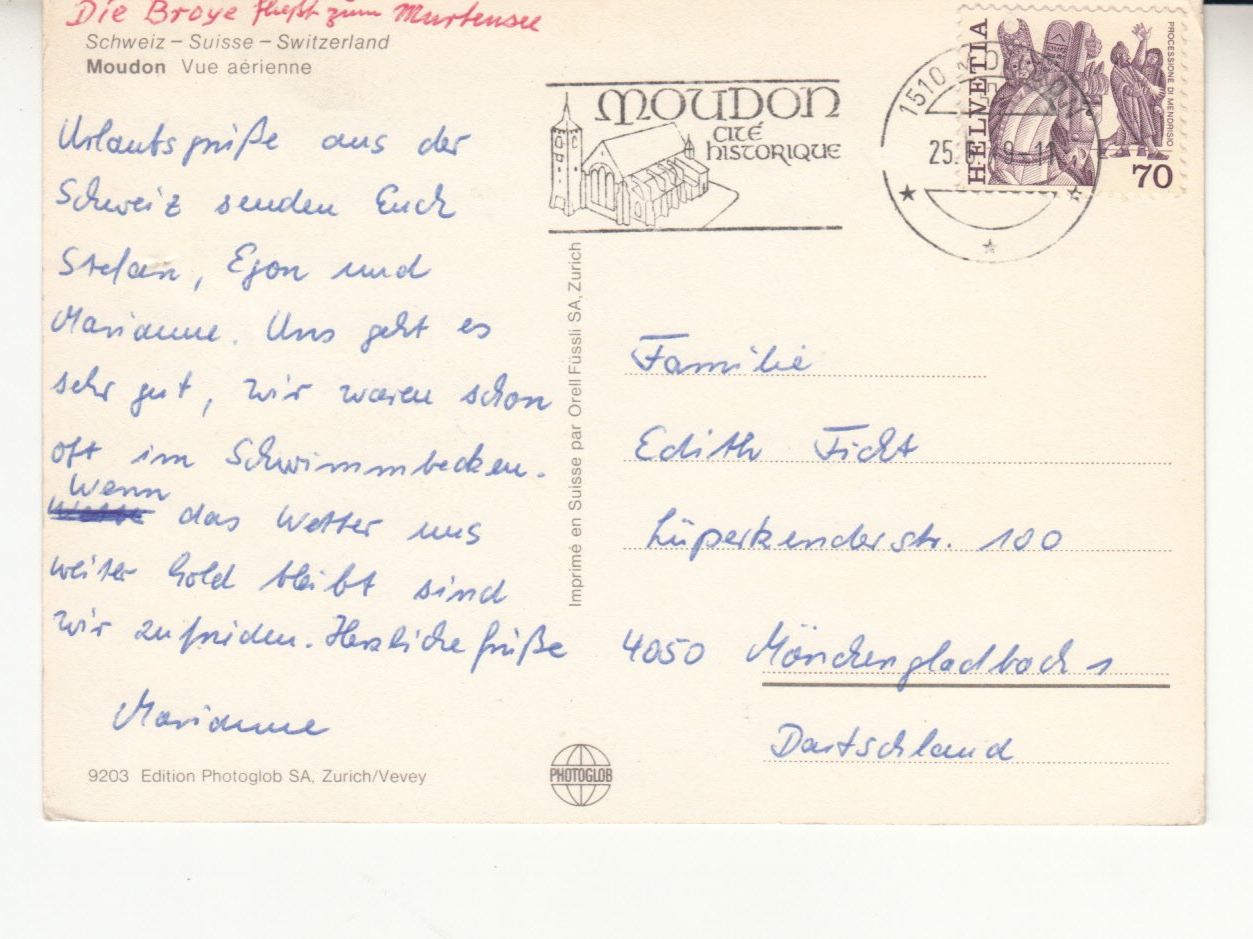 Die Broye fließt zum Murtensee
Schweiz – Suisse – Switzerland
Moudon Vue aérienne
Urlaubsgrüße aus der
Schweiz senden Euch
Stefan, Egon und
Marianne. Uns geht es
sehr gut, wir waren schon
oft im Schwimmbecken.
Wenn
das Wetter uns
weiter hold bleibt sind
wir zufrieden. Herzliche Grüße
Marianne
9203 Edition Photoglob SA, Zurich/Vevey
Imprimé en Suisse par Orell Füssli SA, Zurich
PHOTOGLOB
MOUDON
CITÉ
HISTORIQUE
1510 MOUDON
25. 9-11
HELVETIA
PROCESSIONE DI MENDRISIO
70
Familie
Edith Ficht
Lüperkenderstr. 100
4050 Mönchengladbach 1
Deutschland